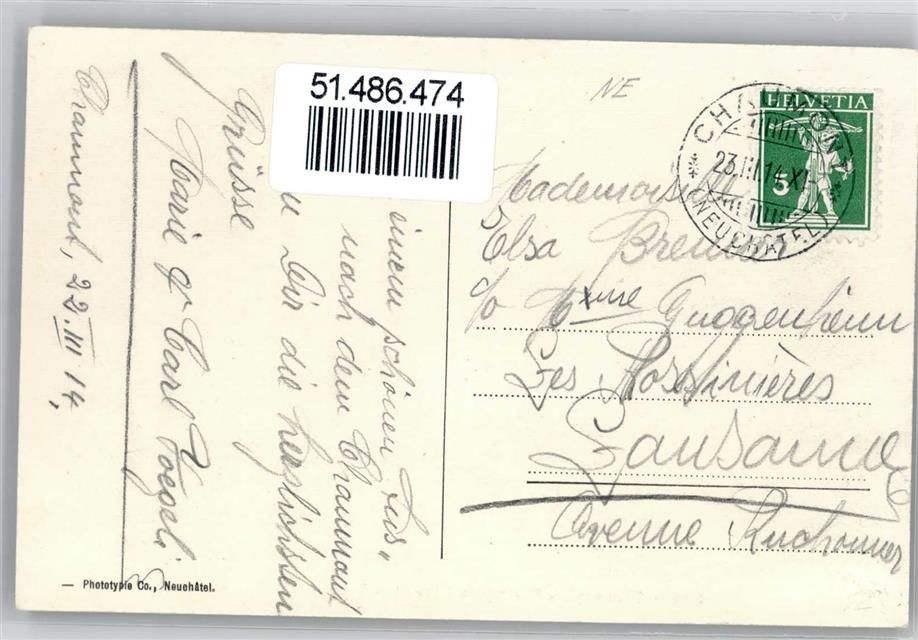 51.486.474
NE
HELVETIA
5
CHAUMONT
23.III.14.XI
(NEUCHÂTEL)
Chaumont, 22. III 14.
einem schönen Aus-
nach dem Chaumont
Dir die herzlichsten
Grüsse
Marie & Carl Voegeli
Mademois
Elsa
c/o Mme Guggenheim
Les Rossinières
Lausanne
Avenue Ruchonnet
— Phototypie Co., Neuchâtel.